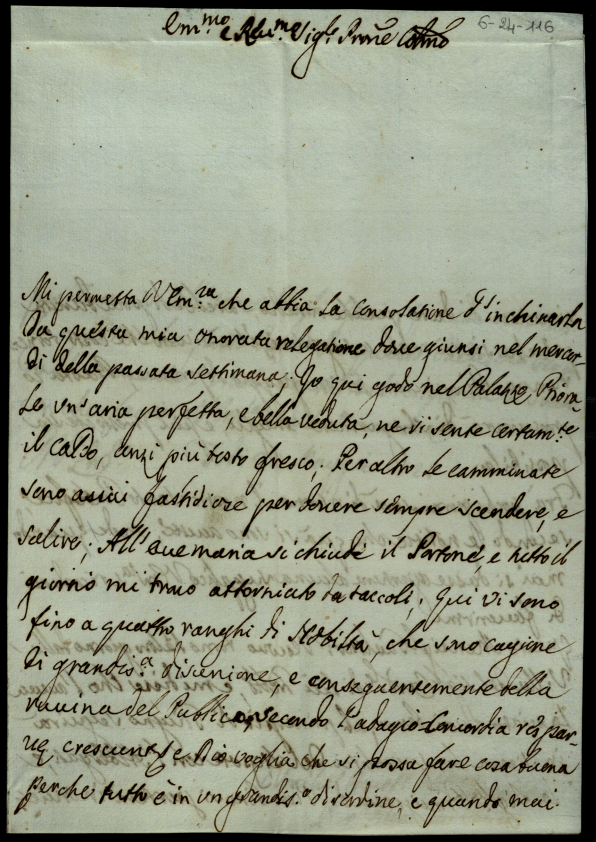 6-24-116
Em.mo e R̃eu.mo Sig.r Prõne Colmo
Mi permetta V Em.za che abbia la consolatione d'inchinarla
da questa mia onorata relegatione doue giunsi nel mercor-
di della passata settimana; Io qui godo nel Palazzo Priora-
le vn'aria perfetta, e bella veduta, ne vi sente certam.te
il caldo, anzi più tosto fresco; Per altro le camminate
sono assai fastidiose per douere sempre scendere, e
salire; All'auemaria si chiude il Portone, e tutto il
giorno mi trouo attorniato da taccoli; Qui vi sono
fino a quattro ranghi di Nobiltà, che sono cagione
di grandis.a disunione, e conseguentemente della
rouina del Publico, secondo l'adagio Concordia res par-
ue crescunt, e Dio voglia che si possa fare cosa buona
perche tutto è in vn grandis.o disordine, e quando mai